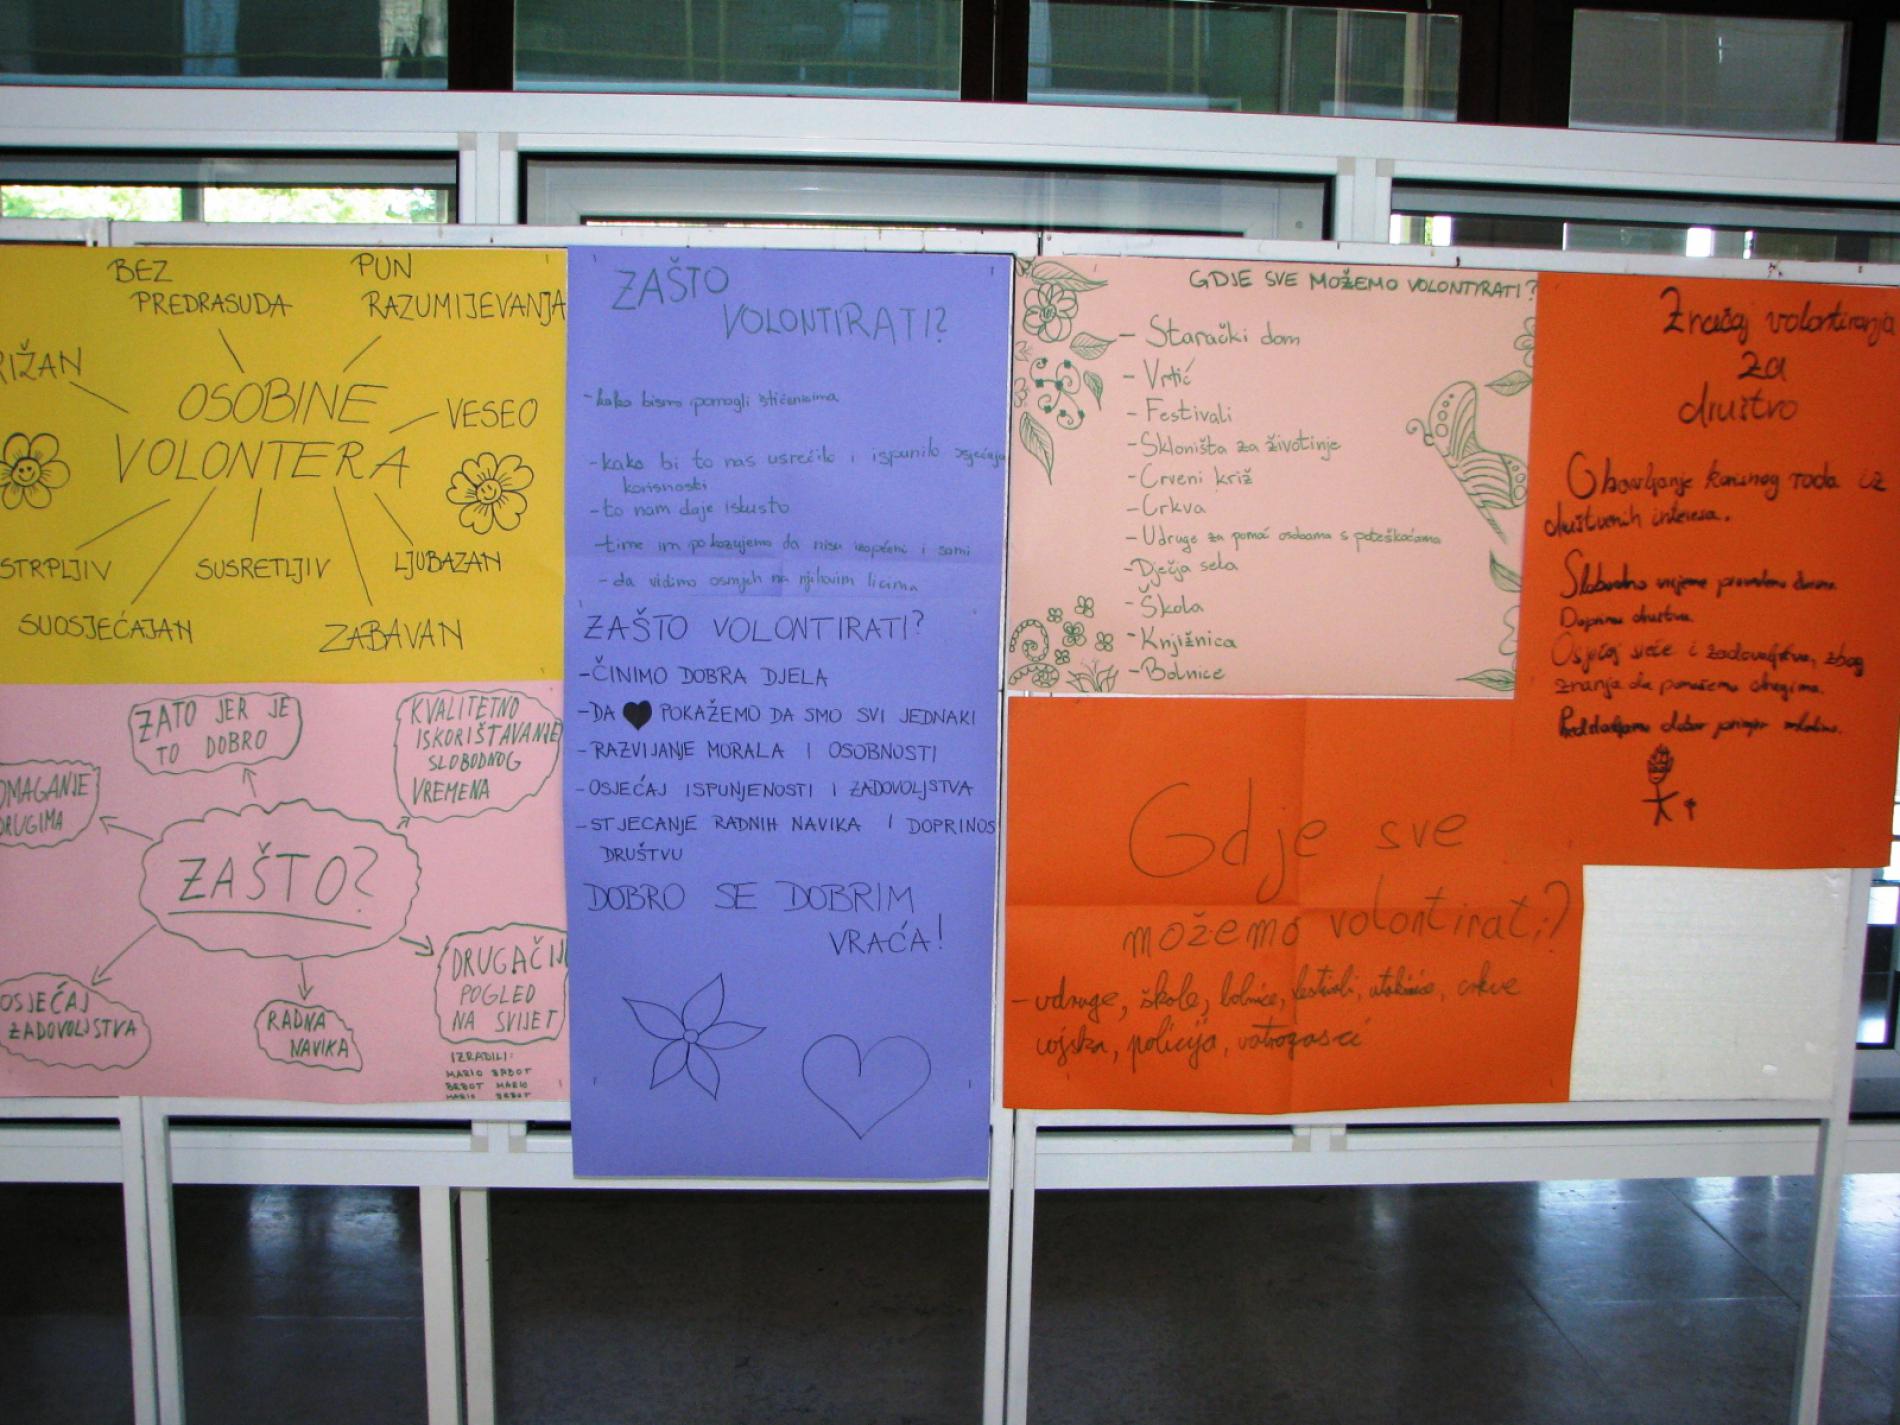 BEZ
PREDRASUDA
PUN
RAZUMIJEVANJA
OSOBINE
VOLONTERA
VESEO
STRPLJIV
SUSRETLJIV
LJUBAZAN
SUOSJEĆAJAN
ZABAVAN
ZATO JER JE
TO DOBRO
KVALITETNO
ISKORIŠTAVANJE
SLOBODNOG
VREMENA
ZAŠTO?
OSJEĆAJ
ZADOVOLJSTVA
RADNA
NAVIKA
POGLED
NA SVIJET
IZRADILI:
MARIO BRBOT
BRBOT MARIO
MARIO BRBOT
ZAŠTO
VOLONTIRATI?
- kako bismo pomogli štićenicima
- kako bi to nas usrećilo i ispunilo osjećaja
korisnosti
- to nam daje iskustvo
- time im pokazujemo da nisu izopćeni i sami
- da vidimo osmjeh na njihovim licima
ZAŠTO VOLONTIRATI?
- ČINIMO DOBRA DJELA
- DA ♥ POKAŽEMO DA SMO SVI JEDNAKI
- RAZVIJANJE MORALA I OSOBNOSTI
- OSJEĆAJ ISPUNJENOSTI I ZADOVOLJSTVA
- STJECANJE RADNIH NAVIKA I DOPRINOS
DRUŠTVU
DOBRO SE DOBRIM
VRAĆA!
GDJE SVE MOŽEMO VOLONTIRATI?
- Starački dom
- Vrtić
- Festivali
- Skloništa za životinje
- Crveni križ
- Crkva
- Udruge za pomoć osobama s poteškoćama
- Dječja sela
- Škola
- Knjižnica
- Bolnice
Gdje sve
možemo volontirati?
- udruge, škole, bolnice, festivali, crkve
vojska, policija, vatrogasci
Značaj volontiranja
za
društvo
Obavljanje korisnog rada iz
društvenih interesa.
Slobodno vrijeme
Doprinos društvu.
Osjećaj sreće i zadovoljstva, zbog
znanja da pomažemo drugima.
Predstavljamo dobar primjer mladima.